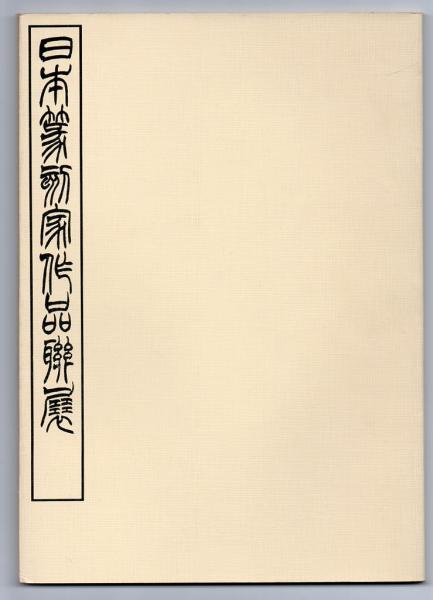 日本篆刻家作品聯展